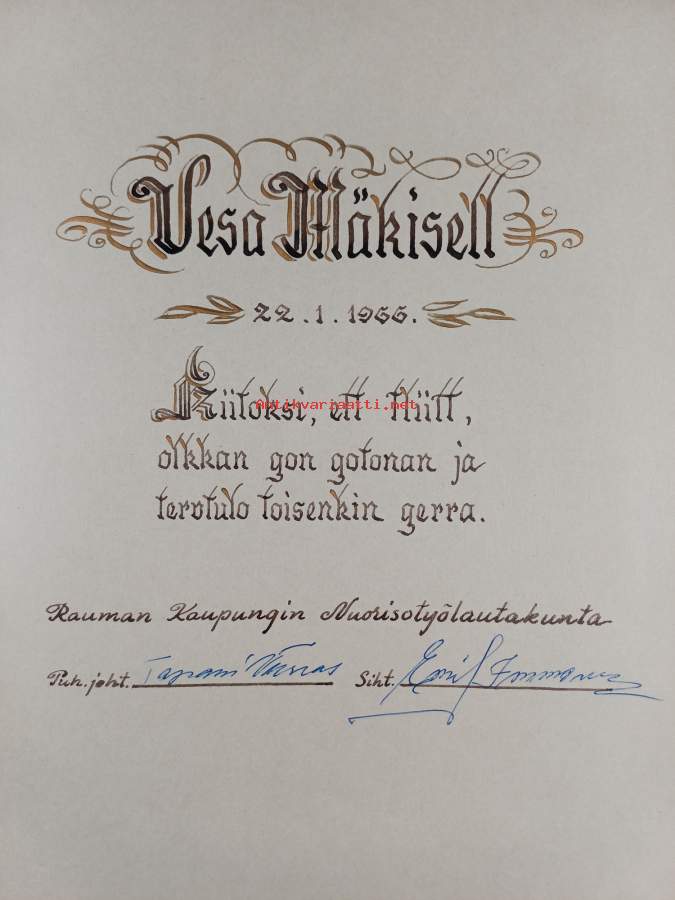 Vesa Mäkisell
22.1.1966.
Kiitoksi, ett tliitt,
Antikvariaatti.net
olkkan gon gotonan ja
tervtulo toisenkin gerra.
Rauman Kaupungin Nuorisotyölautakunta
Puh.joht. Tapani Siht. Emil